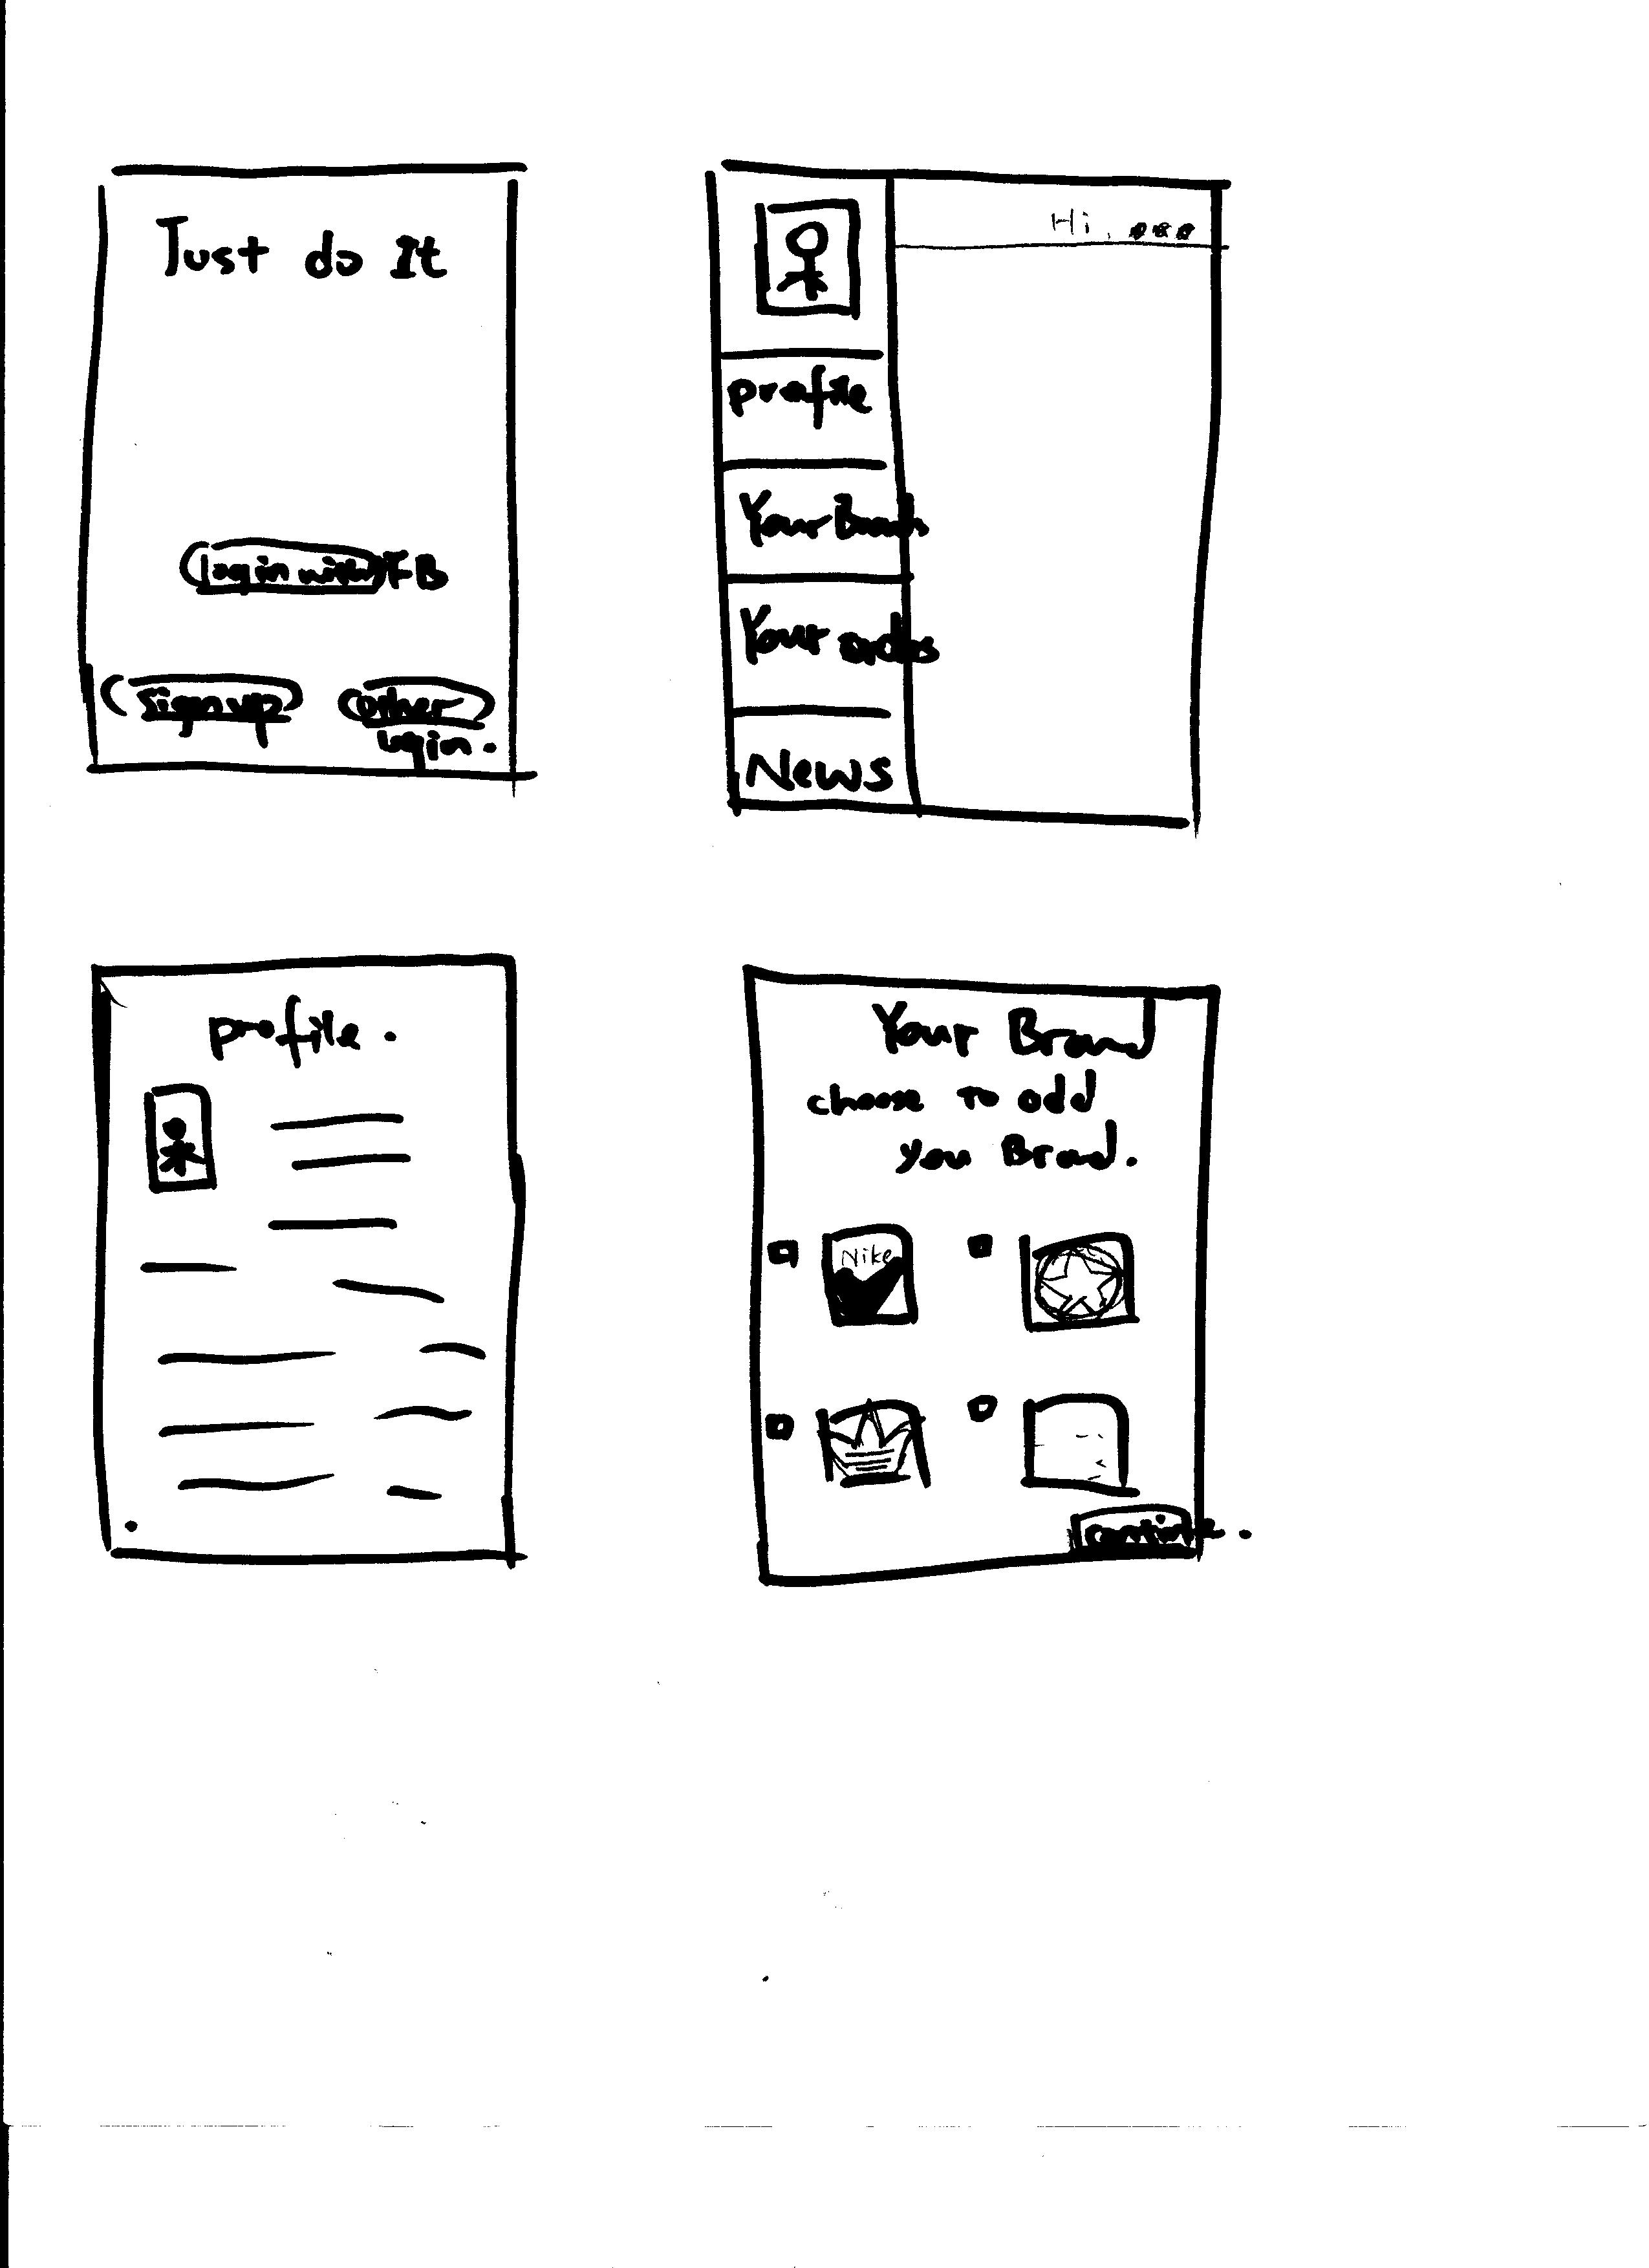 Just do It
login with FB
sign up
other
login.
Hi,
profile
Your Brands
Your orders
News
profile.
Your Brand
choose to add
you Brad.
Nike
continue.